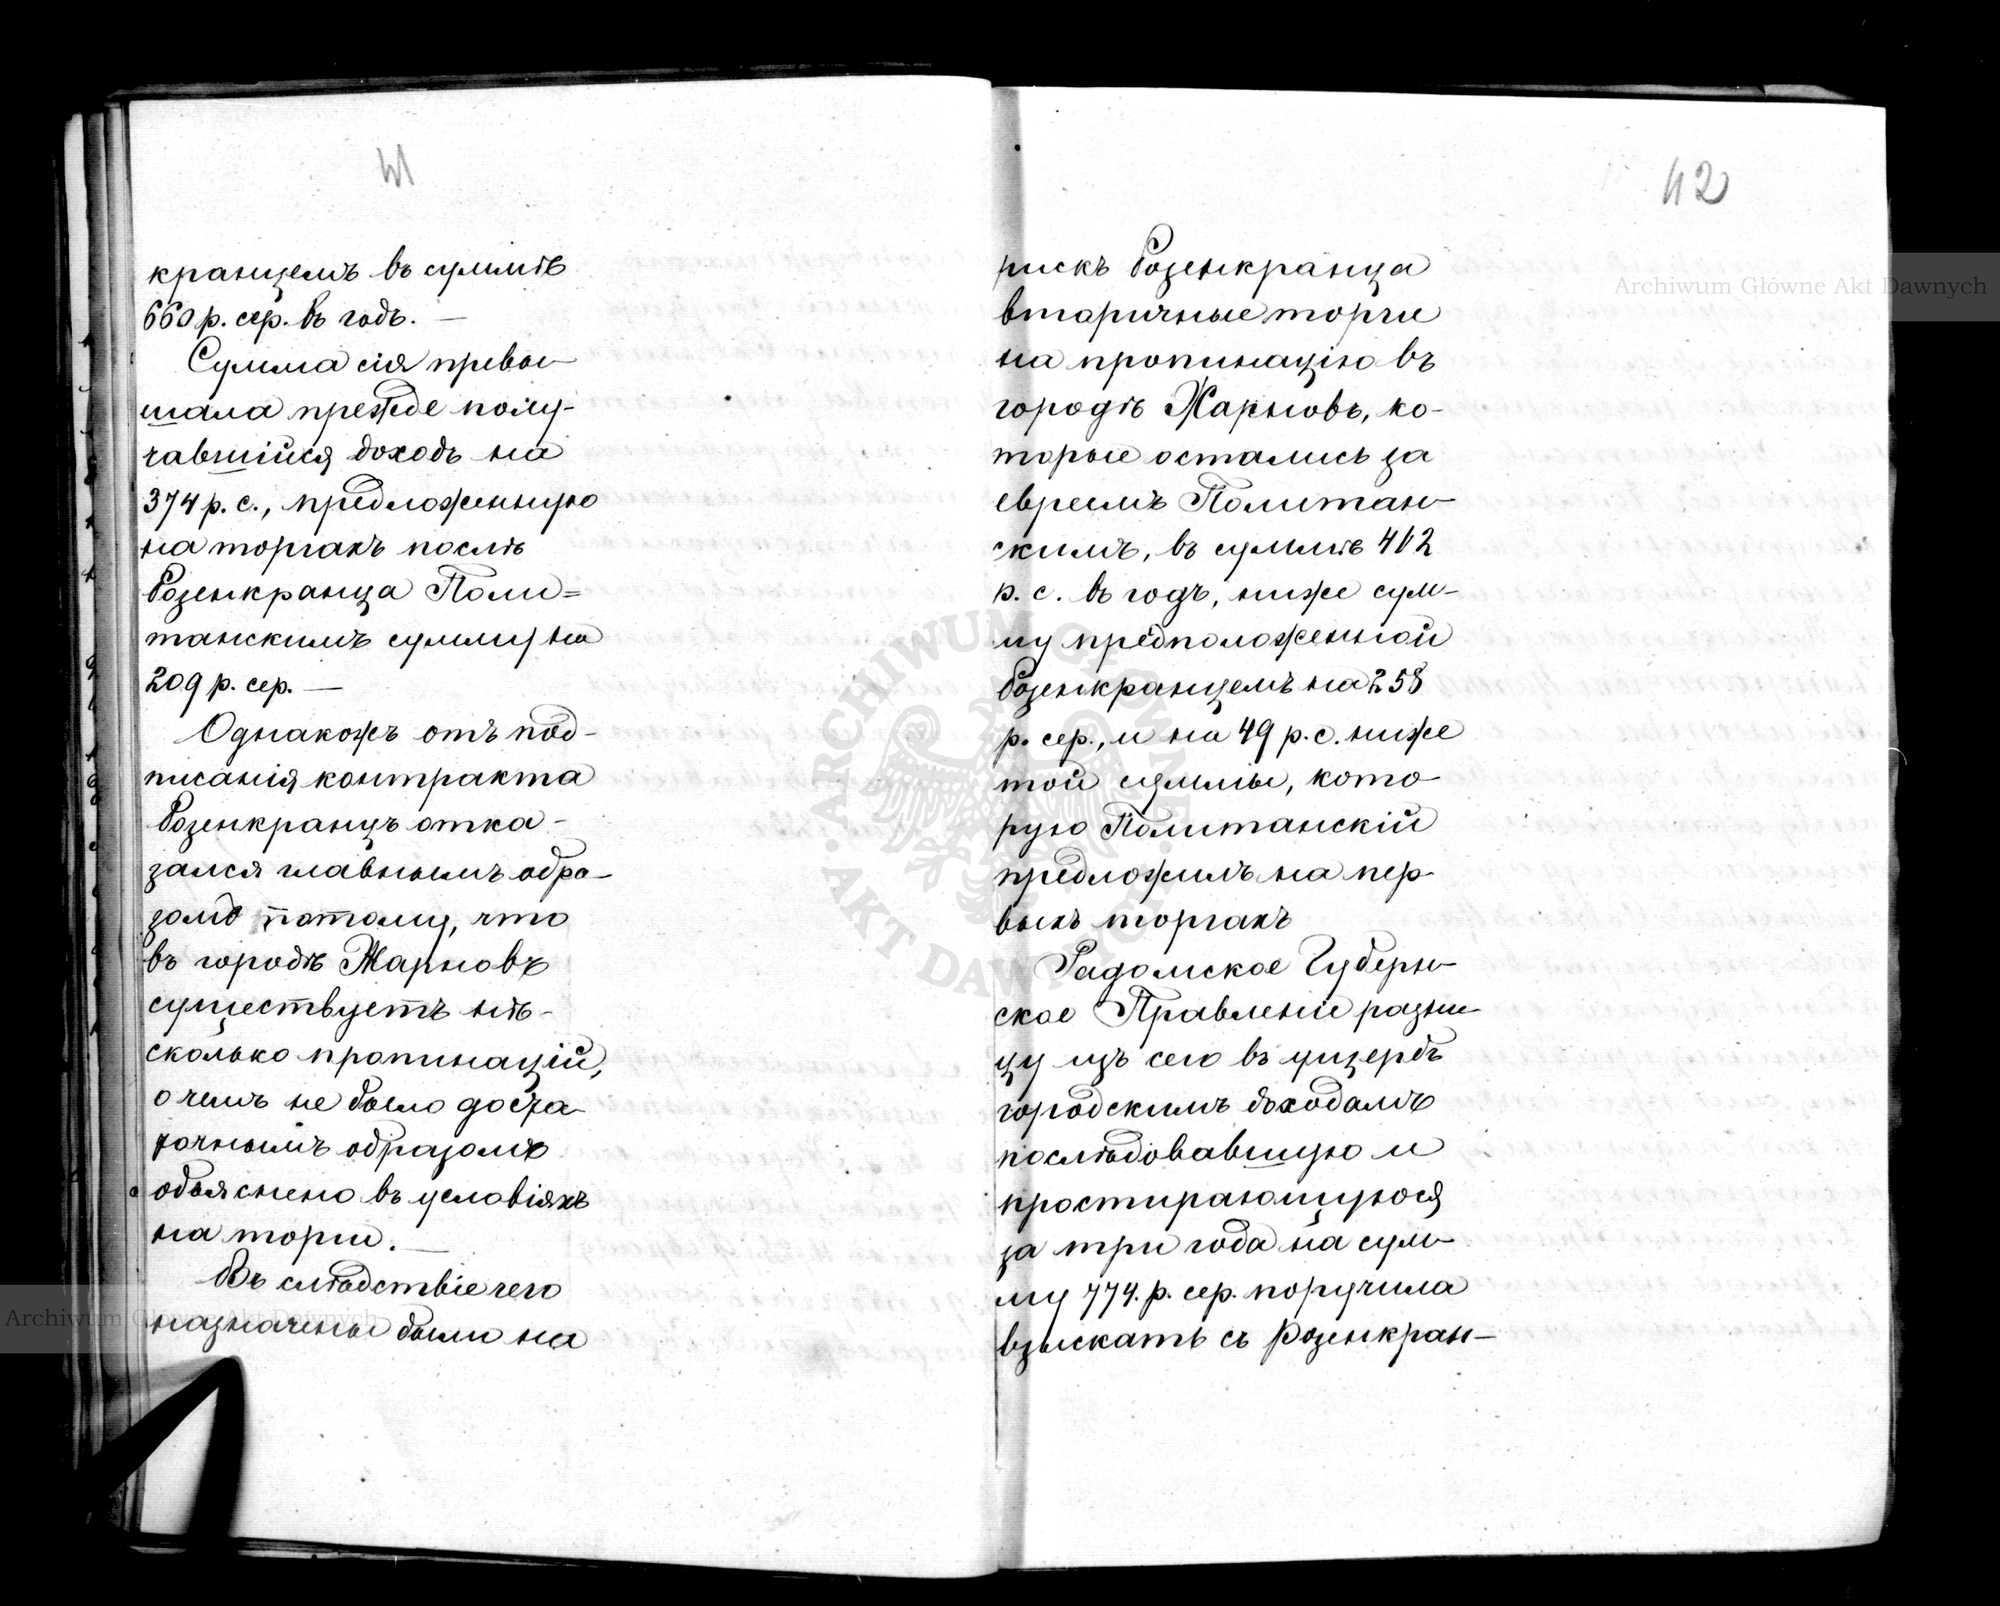 41
кранцемъ въ суммѣ
660 р. сер. въ годъ. —
Сумма сія превы-
шала прежде полу-
чавшійся доходъ на
374 р. с., предложенную
на торгахъ послѣ
Розенкранца Поли=
танскимъ сумму на
209 р. сер. —
Однакожъ отъ под-
писанія контракта
Розенкранцъ отка-
зался главнымъ обра-
зомъ потому, что
въ городѣ Жарновѣ
существуетъ нѣ-
сколько пропинацій,
о чемъ не было доста-
точнымъ образомъ
объяснено въ условіяхъ
на торги. —
Въ слѣдствіе чего
назначены были на
42
рискъ Розенкранца
вторичные торги
на пропинацію въ
городѣ Жарновъ, ко-
торые остались за
евреемъ Политан-
скимъ, въ суммѣ 402
р. с. въ годъ, ниже сум-
му предположенной
Розенкранцемъ на 258
р. сер., и на 49 р. с. ниже
той суммы, кото-
рую Политанскій
предложилъ на пер-
выхъ торгахъ
Радомское Губерн-
ское Правленіе разни-
цу изъ сего въ ущербъ
городскимъ доходамъ
послѣдовавшую и
простирающуюся
за три года на сум-
му 774. р. сер. поручила
взыскать съ Розенкран-
Archiwum Główne Akt Dawnych
ARCHIWUM GŁÓWNE · AKT DAWNYCH ·
Archiwum Główne Akt Dawnych